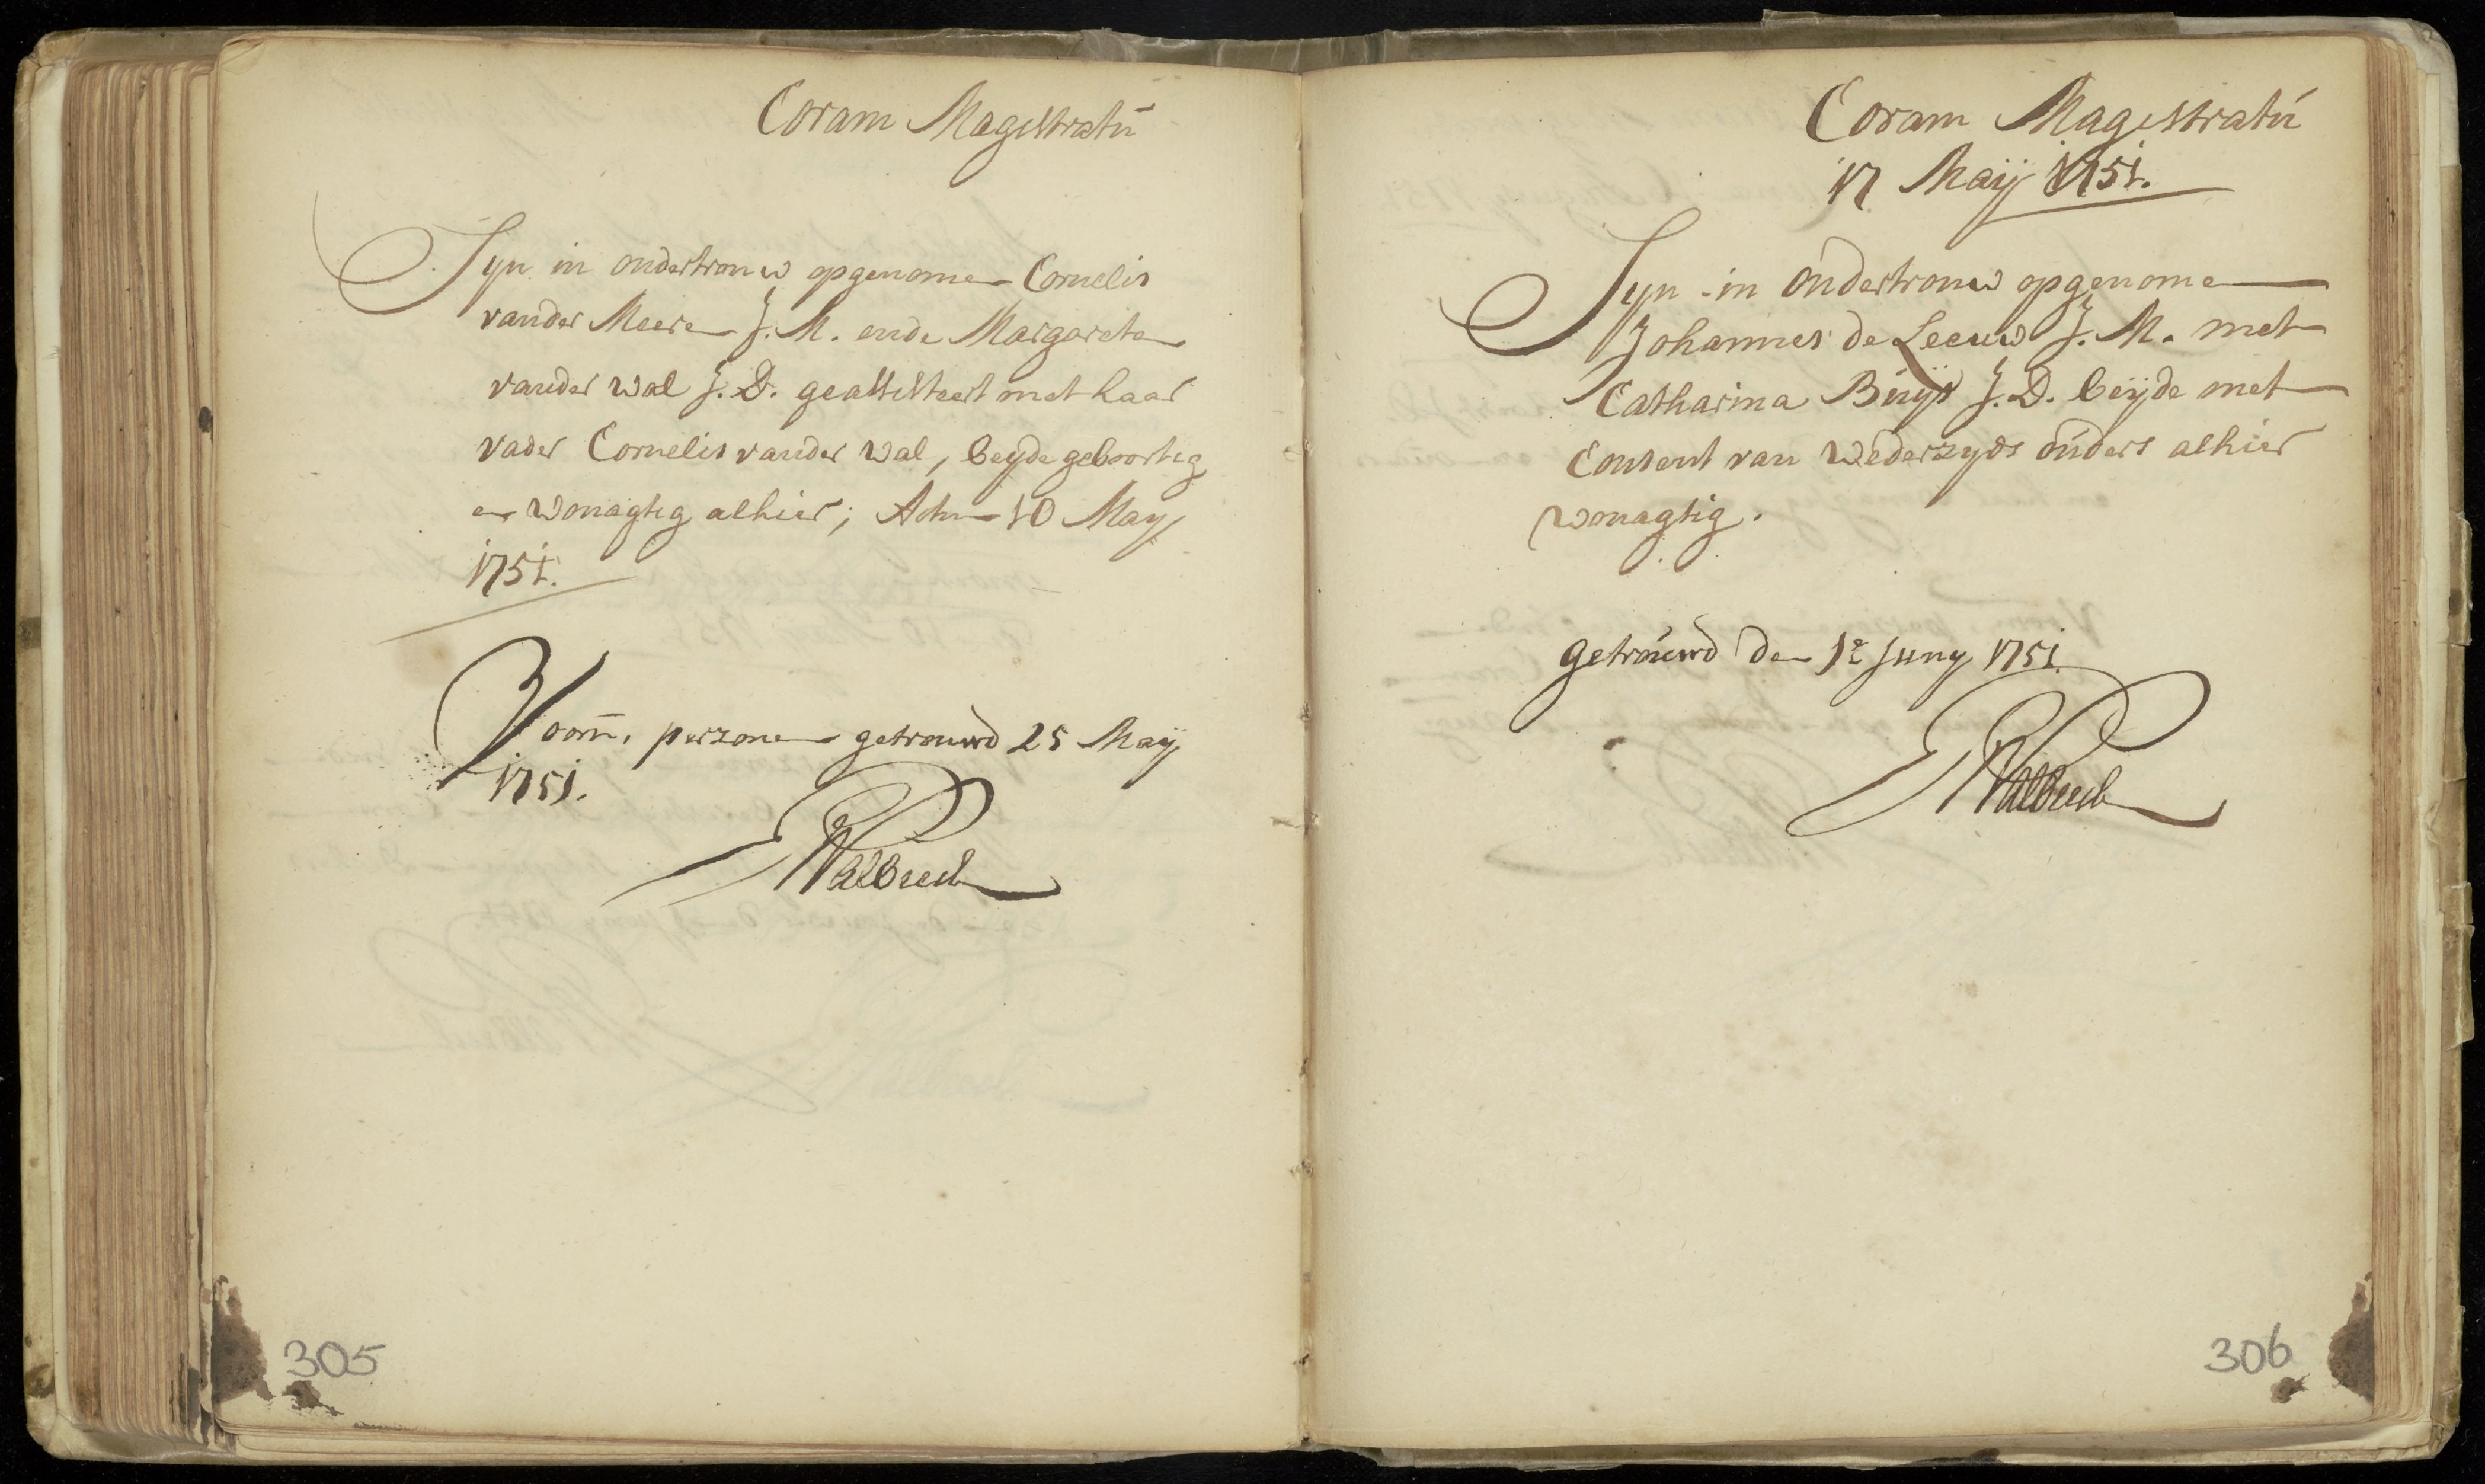 Coram Magistratu
Syn in ondertrouw opgenomen Cornelis
vander Meeren J. M. ende Margareta
vander Wal J. D. geassisteert met haar
vader Cornelis vander Wal, beyde geboortig
en wonagtig alhier; Actum 10 May
1751.
Voorn. perzonen getrouwd 25 Maÿ
1751.
305
Coram Magistratu
17 Maÿ 1751.
Syn in ondertrouw opgenomen
Johannes de Leeuw J. M. met
Catharina Buÿs J. D. beÿde met
Consent van wederzyds ouders alhier
wonagtig.
getrouwd den 1e Juny 1751.
306